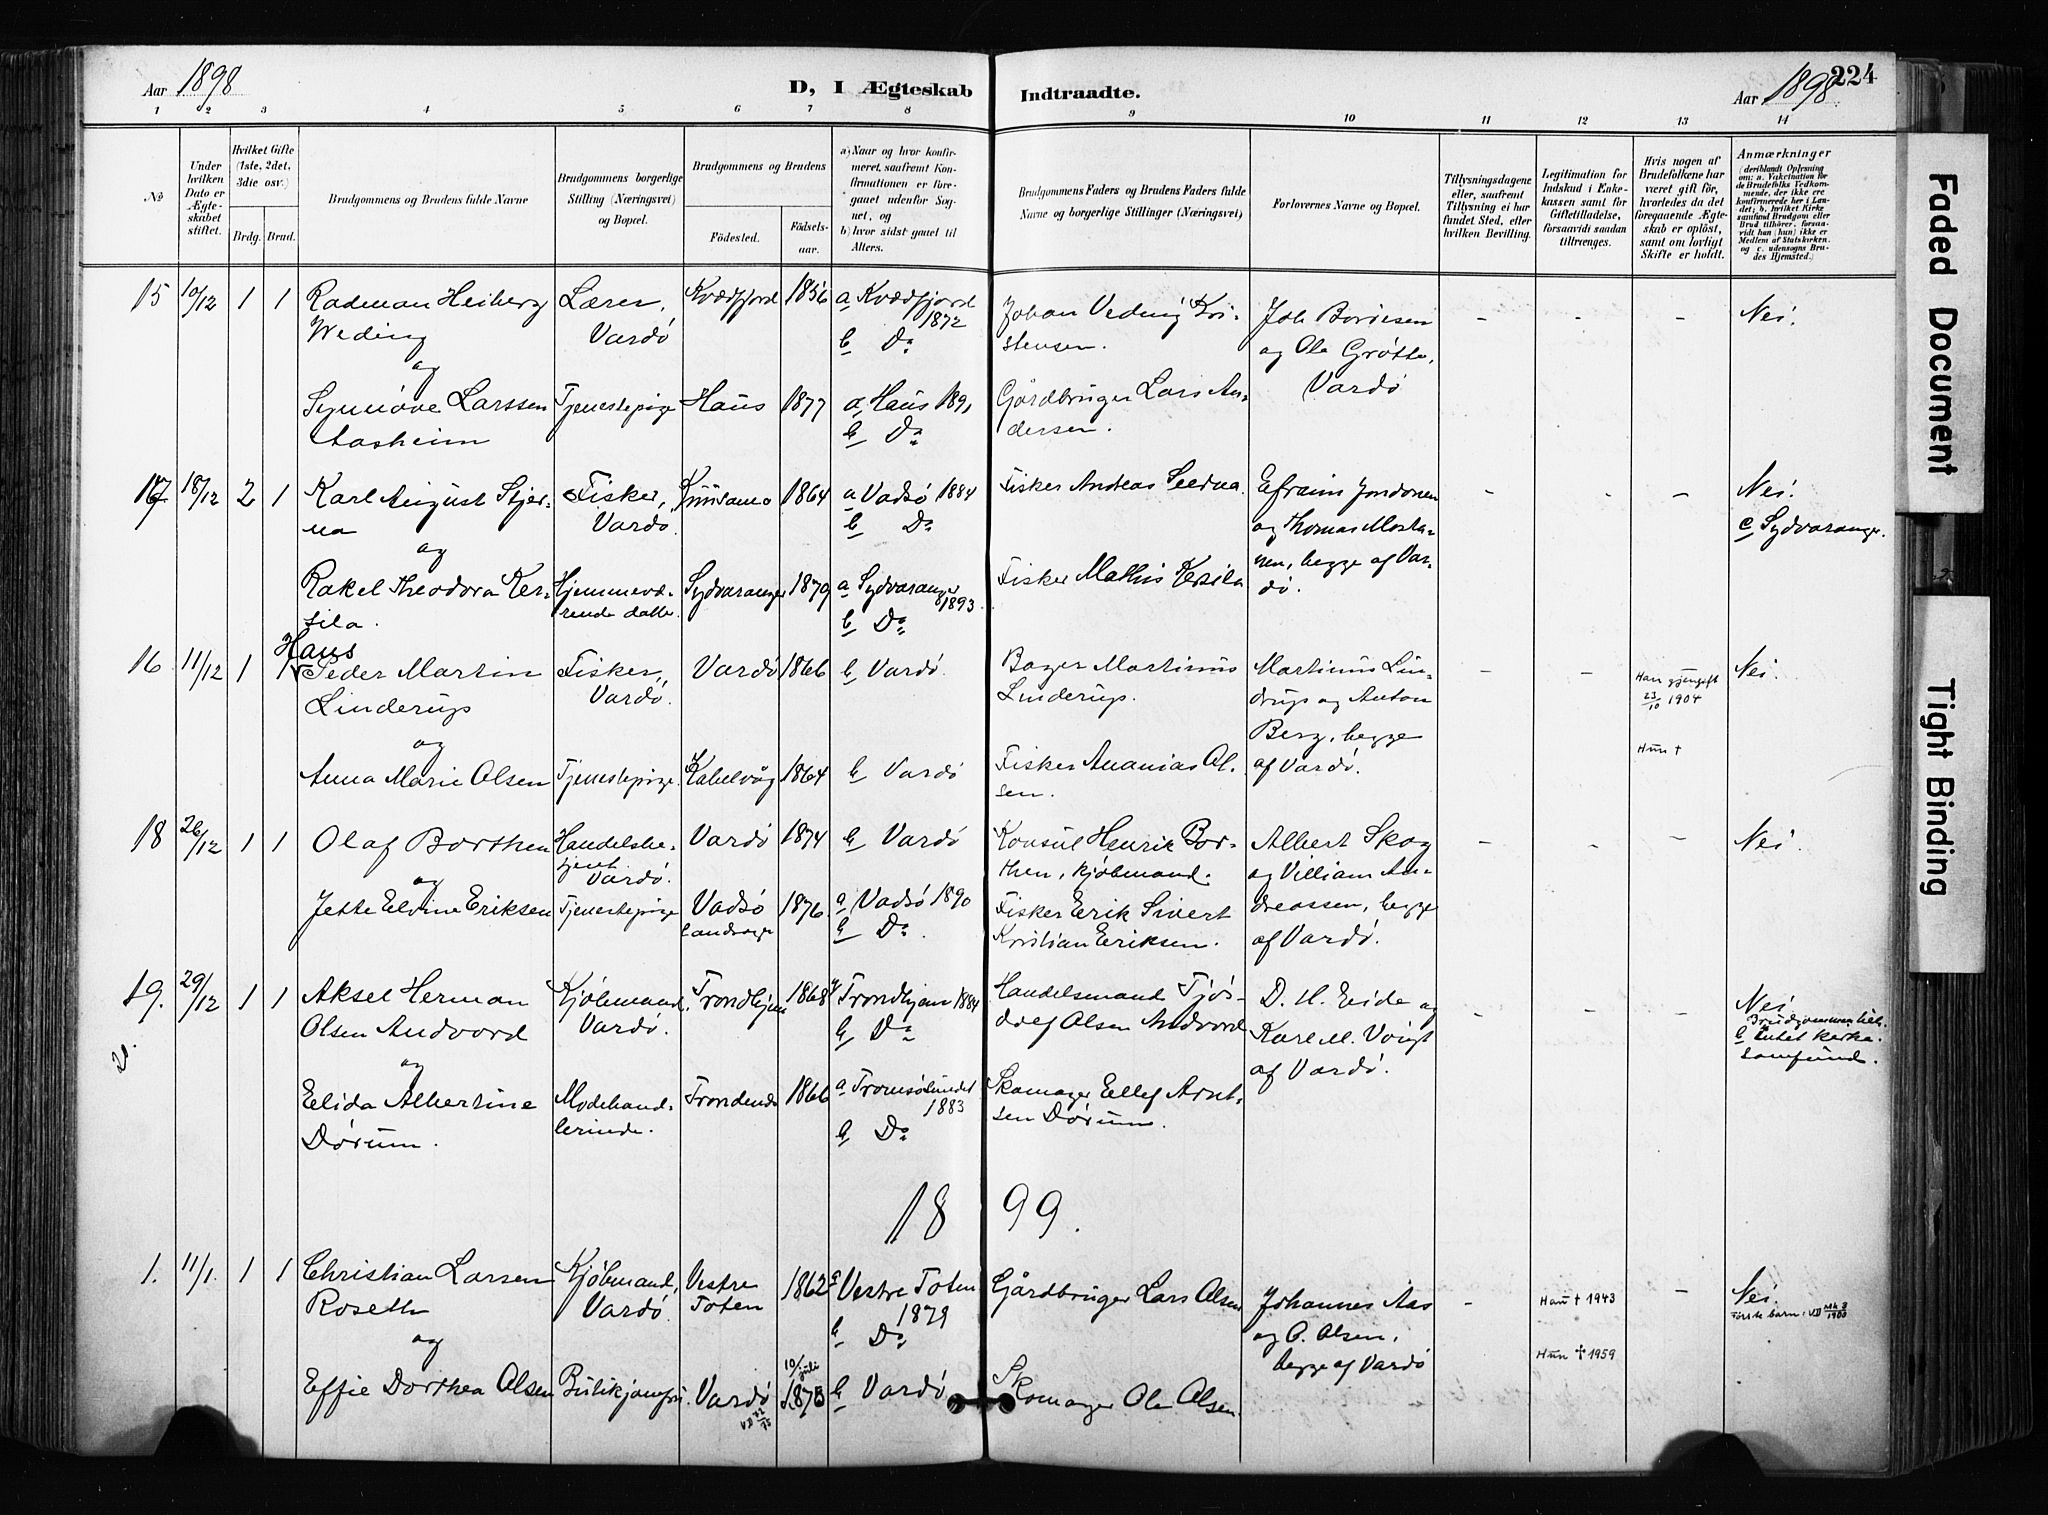 Aar 1898
D, I Ægteskab
Indtraadte.
Aar 1898
224
1 2 3 4 5 6 7 8 9 10 11 12 13 14
No
Under hvilken Dato er Ægteskabet stiftet.
Hvilket Gifte (1ste, 2det, 3die osv.)
Brdg. Brud.
Brudgommens og Brudens fulde Navne
Brudgommens borgerlige Stilling (Næringsvei) og Bopæl.
Brudgommens og Brudens
Födested. Födselsaar.
a) Naar og hvor konfirmeret, saafremt Konfirmationen er foregaaet udenfor Sognet, og
b) hvor sidst gaaet til Alters.
Brudgommens Faders og Brudens Faders fulde Navne og borgerlige Stillinger (Næringsvei)
Forlovernes Navne og Bopæl.
Tillysningsdagene eller, saafremt Tillysning ei har fundet Sted, efter hvilken Bevilling.
Legitimation for Indskud i Enkekassen samt for Giftetilladelse, forsaavidt saadan tiltrænges.
Hvis nogen af Brudefolkene har været gift för, hvorledes da det foregaaende Ægteskab er oplöst, samt om lovligt Skifte er holdt.
Anmærkninger
(deriblandt Oplysning om: a. Vaccination for de Brudefolks Vedkommende, der ikke ere konfirmerede her i Landet; b. hvilket Kirkesamfund Brudgom eller Brud tilhörer, forsaavidt han (hun) ikke er Medlem af Statskirken, og c. udensogns Brudes Hjemsted.)
15 10/12 1 1 Radman Heiberg Lærer, Kvædfjord 1856 a Kvædfjord
Weding Vardö 1872
og b Do
Johan Veding Kristensen.
Joh Borisen
og Ole Grøtte,
Vardö
- - - Nei.
Synnöve Larssen Tjenestepige Haus 1877 a Haus 1891
Aasheim b Do
Gårdbruger Lars Andersen.
17 18/12 2 1 Karl August Stjer- Fisker, Kuusamo 1864 a Vadsö 1884
na Vardö. b Do
og
Fisker Andreas
Efraim
og Thomas
nen, begge af Var-
dö.
- - - Nei.
c Sydvaranger.
Rakel Theodora Ker- Hjemmevæ- Sydvaranger 1879 a Sydvaranger
sila. rende datter. 1893
b Do
Fisker Mathis Kersila
16 11/12 1 1 Hans
Peder Martin Fisker, Vardö 1866 b Vardö.
Linderup Vardö.
og
Bager Martinus
Linderup.
Martinus Lin-
drup og Anton
Berg, begge
af Vardö.
- - Han gjengift
23/10 1904
Hun †
Nei.
Anna Marie Olsen Tjenestepige. Kabelvåg 1864 b Vardö
Fisker Ananias Ol-
sen.
18 26/12 1 1 Olaf Borthen Handelsbe- Vardö 1874 b Vardö
og tjent. Vardö.
Konsul Henrik Bor-
then, kjöbmand.
Albert Skog
og Villiam An-
dreassen, begge
af Vardö.
- - - Nei.
Jette Elvine Eriksen Tjenestepige Vadsö 1876 a Vadsö 1890
landsogn b Do.
Fisker Erik Sivert
Kristian Eriksen.
19. 29/12 1 1 Aksel Herman Kjöbmand. Trondhjem 1868 a Trondhjem 1884
Olsen Andvord Vardö. b Do
og
Handelsmand
Olsen Andvord
D. H. Eide og
Karl M. Voigt
af Vardö.
- - - Nei
Brudgommen tilh.
b intet kirke-
samfund.
Elida Albertine Modehand- Trondenes 1866 a Tromsösundet
Dörum. lerinde. 1883
b Do
Skomager Ellef Arnt-
sen Dörum.
18 99.
1. 11/1. 1 1 Christian Larsen Kjöbmand, Vestre 1862 a Vestre Toten
Roseth Vardö. Toten 1879
og b Do
Gårdbruger Lars Olsen
Johannes Aas
og O. Olsen,
begge af Vardö
- Han † 1943
Hun † 1959
- Nei.
Første barn:
Effie Dorthea Olsen Butikjomfru. Vardö 10/juli 1875 b Vardö
Skomager Ole Olsen.
Faded Document
Tight Binding